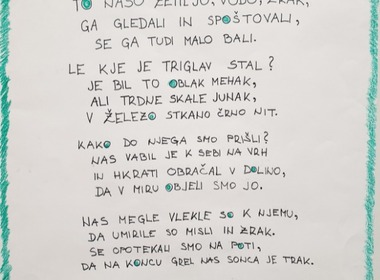 TO NAŠO ZEMLJO, VODO, ZRAK,
GA GLEDALI IN SPOŠTOVALI,
SE GA TUDI MALO BALI.
LE KJE JE TRIGLAV STAL?
JE BIL TO OBLAK MEHAK,
ALI TRDNE SKALE JUNAK,
V ŽELEZO STKANO ČRNO NIT.
KAKO DO NJEGA SMO PRIŠLI?
NAS VABIL JE K SEBI NA VRH
IN HKRATI OBRAČAL V DOLINO,
DA V MIRU OBJELI SMO JO.
NAS MEGLE VLEKLE SO K NJEMU,
DA UMIRILE SO MISLI IN ZRAK.
SE OPOTEKALI SMO NA POTI,
DA NA KONCU GREL NAS SONCA JE TRAK.